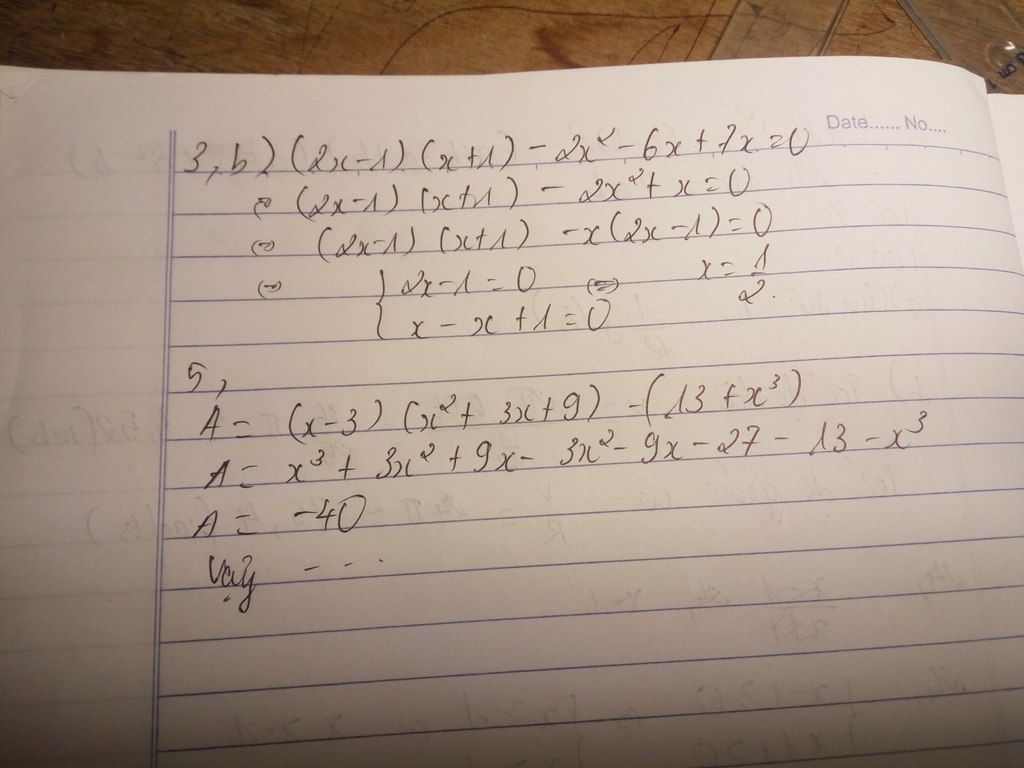 Date...... No....
3, b) (2x-1) (x+1) - 2x² - 6x + 7x = 0
⇔ (2x-1) (x+1) - 2x² + x = 0
⇔ (2x-1) (x+1) - x(2x-1) = 0
⇔ { 2x-1 = 0 ⇔ x = 1/2.
x - x + 1 = 0
5,
A = (x-3) (x² + 3x + 9) - (13 + x³)
A = x³ + 3x² + 9x - 3x² - 9x - 27 - 13 - x³
A = -40
Vậy - - .